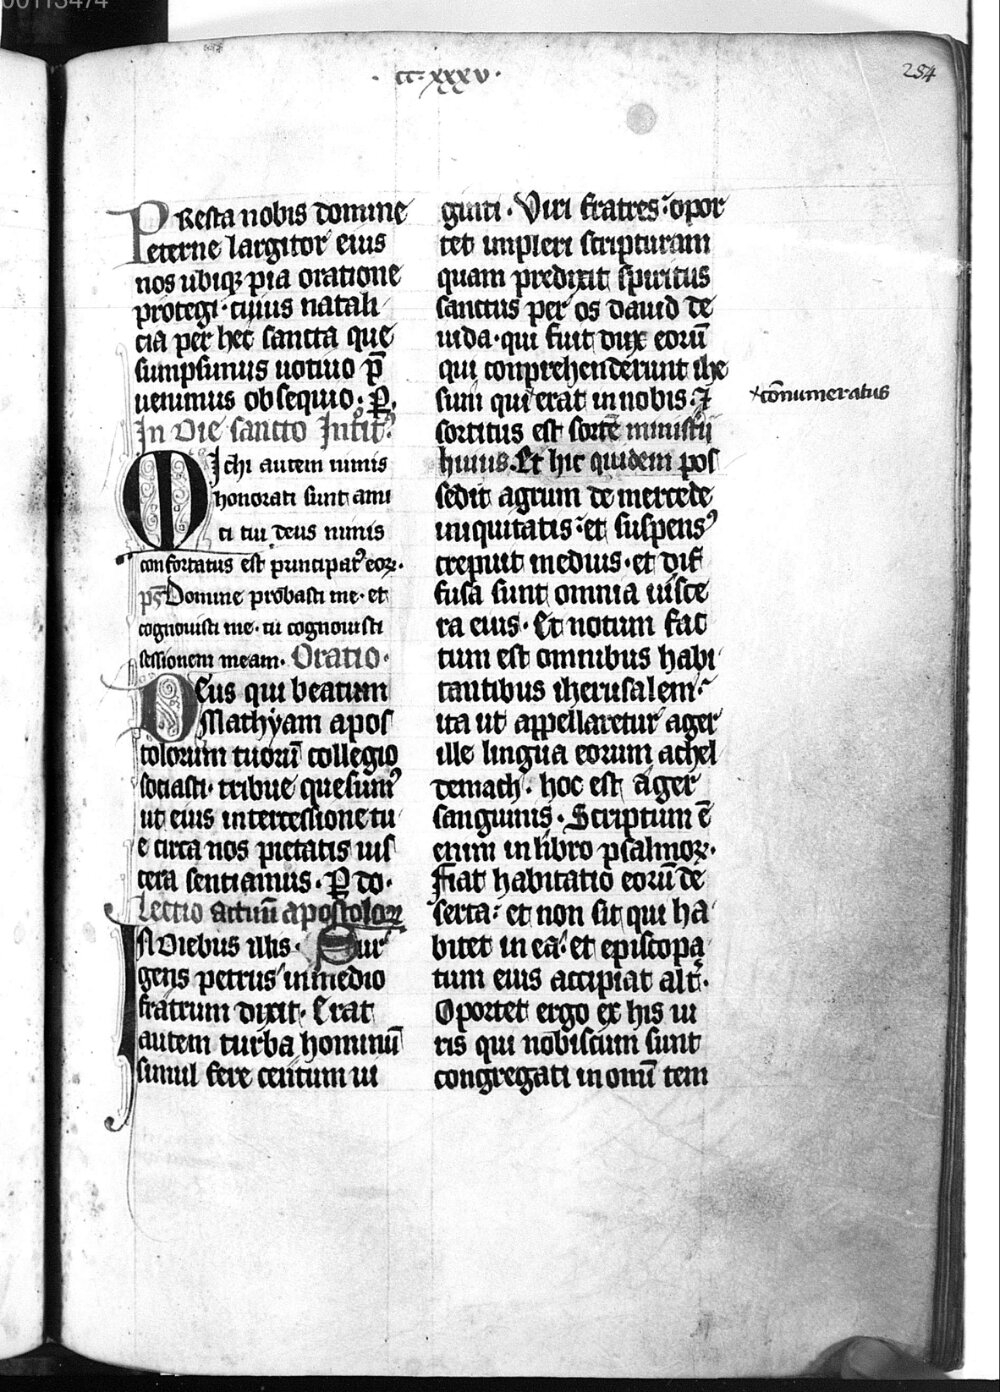 00113474
· cc · xxxv ·
254
PResta nobis domine
eterne largitor eius
nos ubiqꝫ pia oratione
protegi · cuius natali
cia per hec sancta que
sumpsimus uotiuo p̄
uenimus obsequio · ꝑ.
In die sancto Intit᷒.
MIchi autem nimis
honorati sunt ami
ci tui deus nimis
confortatus est principat᷒ eoꝝ.
ps̄ Domine probasti me · et
cognouisti me · tu cognouisti
sessionem meam. Oratio.
DEus qui beatum
Mathyam apos
tolorum tuorū collegio
sociasti · tribue quesum᷒
ut eius intercessione tu
e circa nos pietatis uis
cera sentiamus. ꝑ do.
Lectio actuū apostoloꝝ
IN diebus illis. Sur
gens petrus in medio
fratrum dixit. Erat
autem turba hominū
simul fere centum ui
ginti. Viri fratres: opor
tet impleri scripturam
quam predixit spiritus
sanctus per os dauid de
iuda · qui fuit dux eorū
qui conprehenderunt ihe
sum qui erat in nobis. ⁊
×cōnumeratus
sortitus est sortē ministii
huius. Et hic quidem pos
sedit agrum de mercede
iniquitatis: et suspens᷒
crepuit medius · et dif
fusa sunt omnia uisce
ra eius. Et notum fac
tum est omnibus habi
tantibus iherusalem:
ita ut appellaretur ager
ille lingua eorum achel
demach. hoc est ager
sanguinis. Scriptum ē
enim in libro psalmoꝝ.
Fiat habitatio eorū de
serta: et non sit qui ha
bitet in ea: et episcopa
tum eius accipiat alt᷒.
Oportet ergo ex his ui
ris qui nobiscum sunt
congregati in onū tem